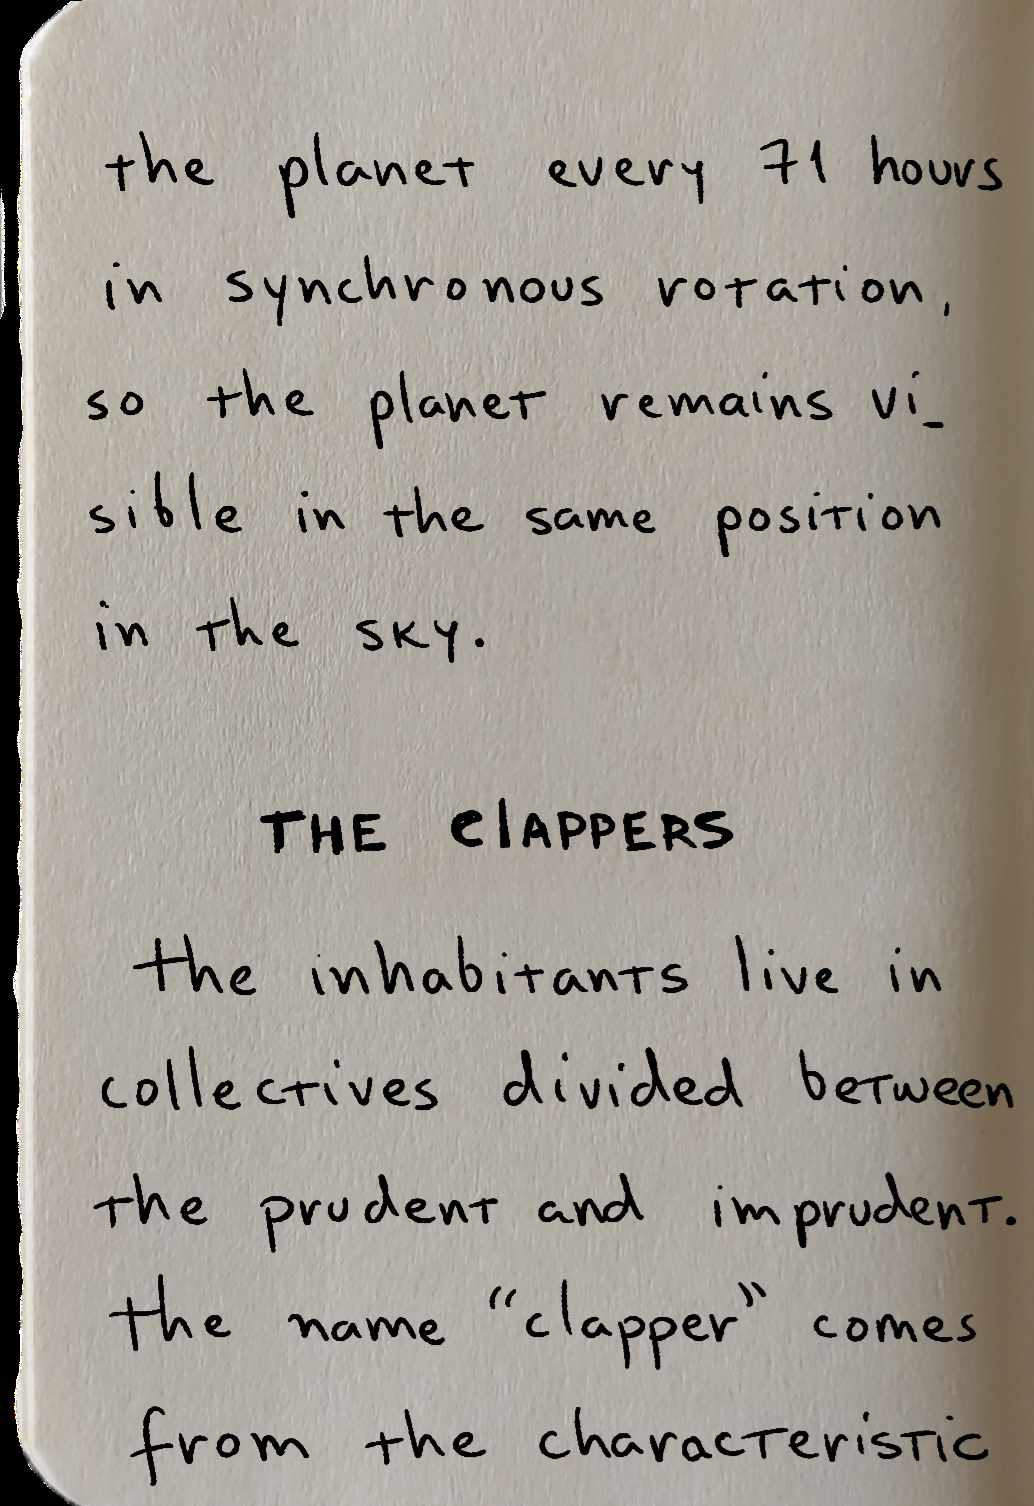 the planet every 71 hours
in synchronous rotation,
so the planet remains vi_
sible in the same position
in the sky.
THE ClAPPERS
the inhabitants live in
collectives divided between
the prudent and imprudent.
the name “clapper” comes
from the characteristic